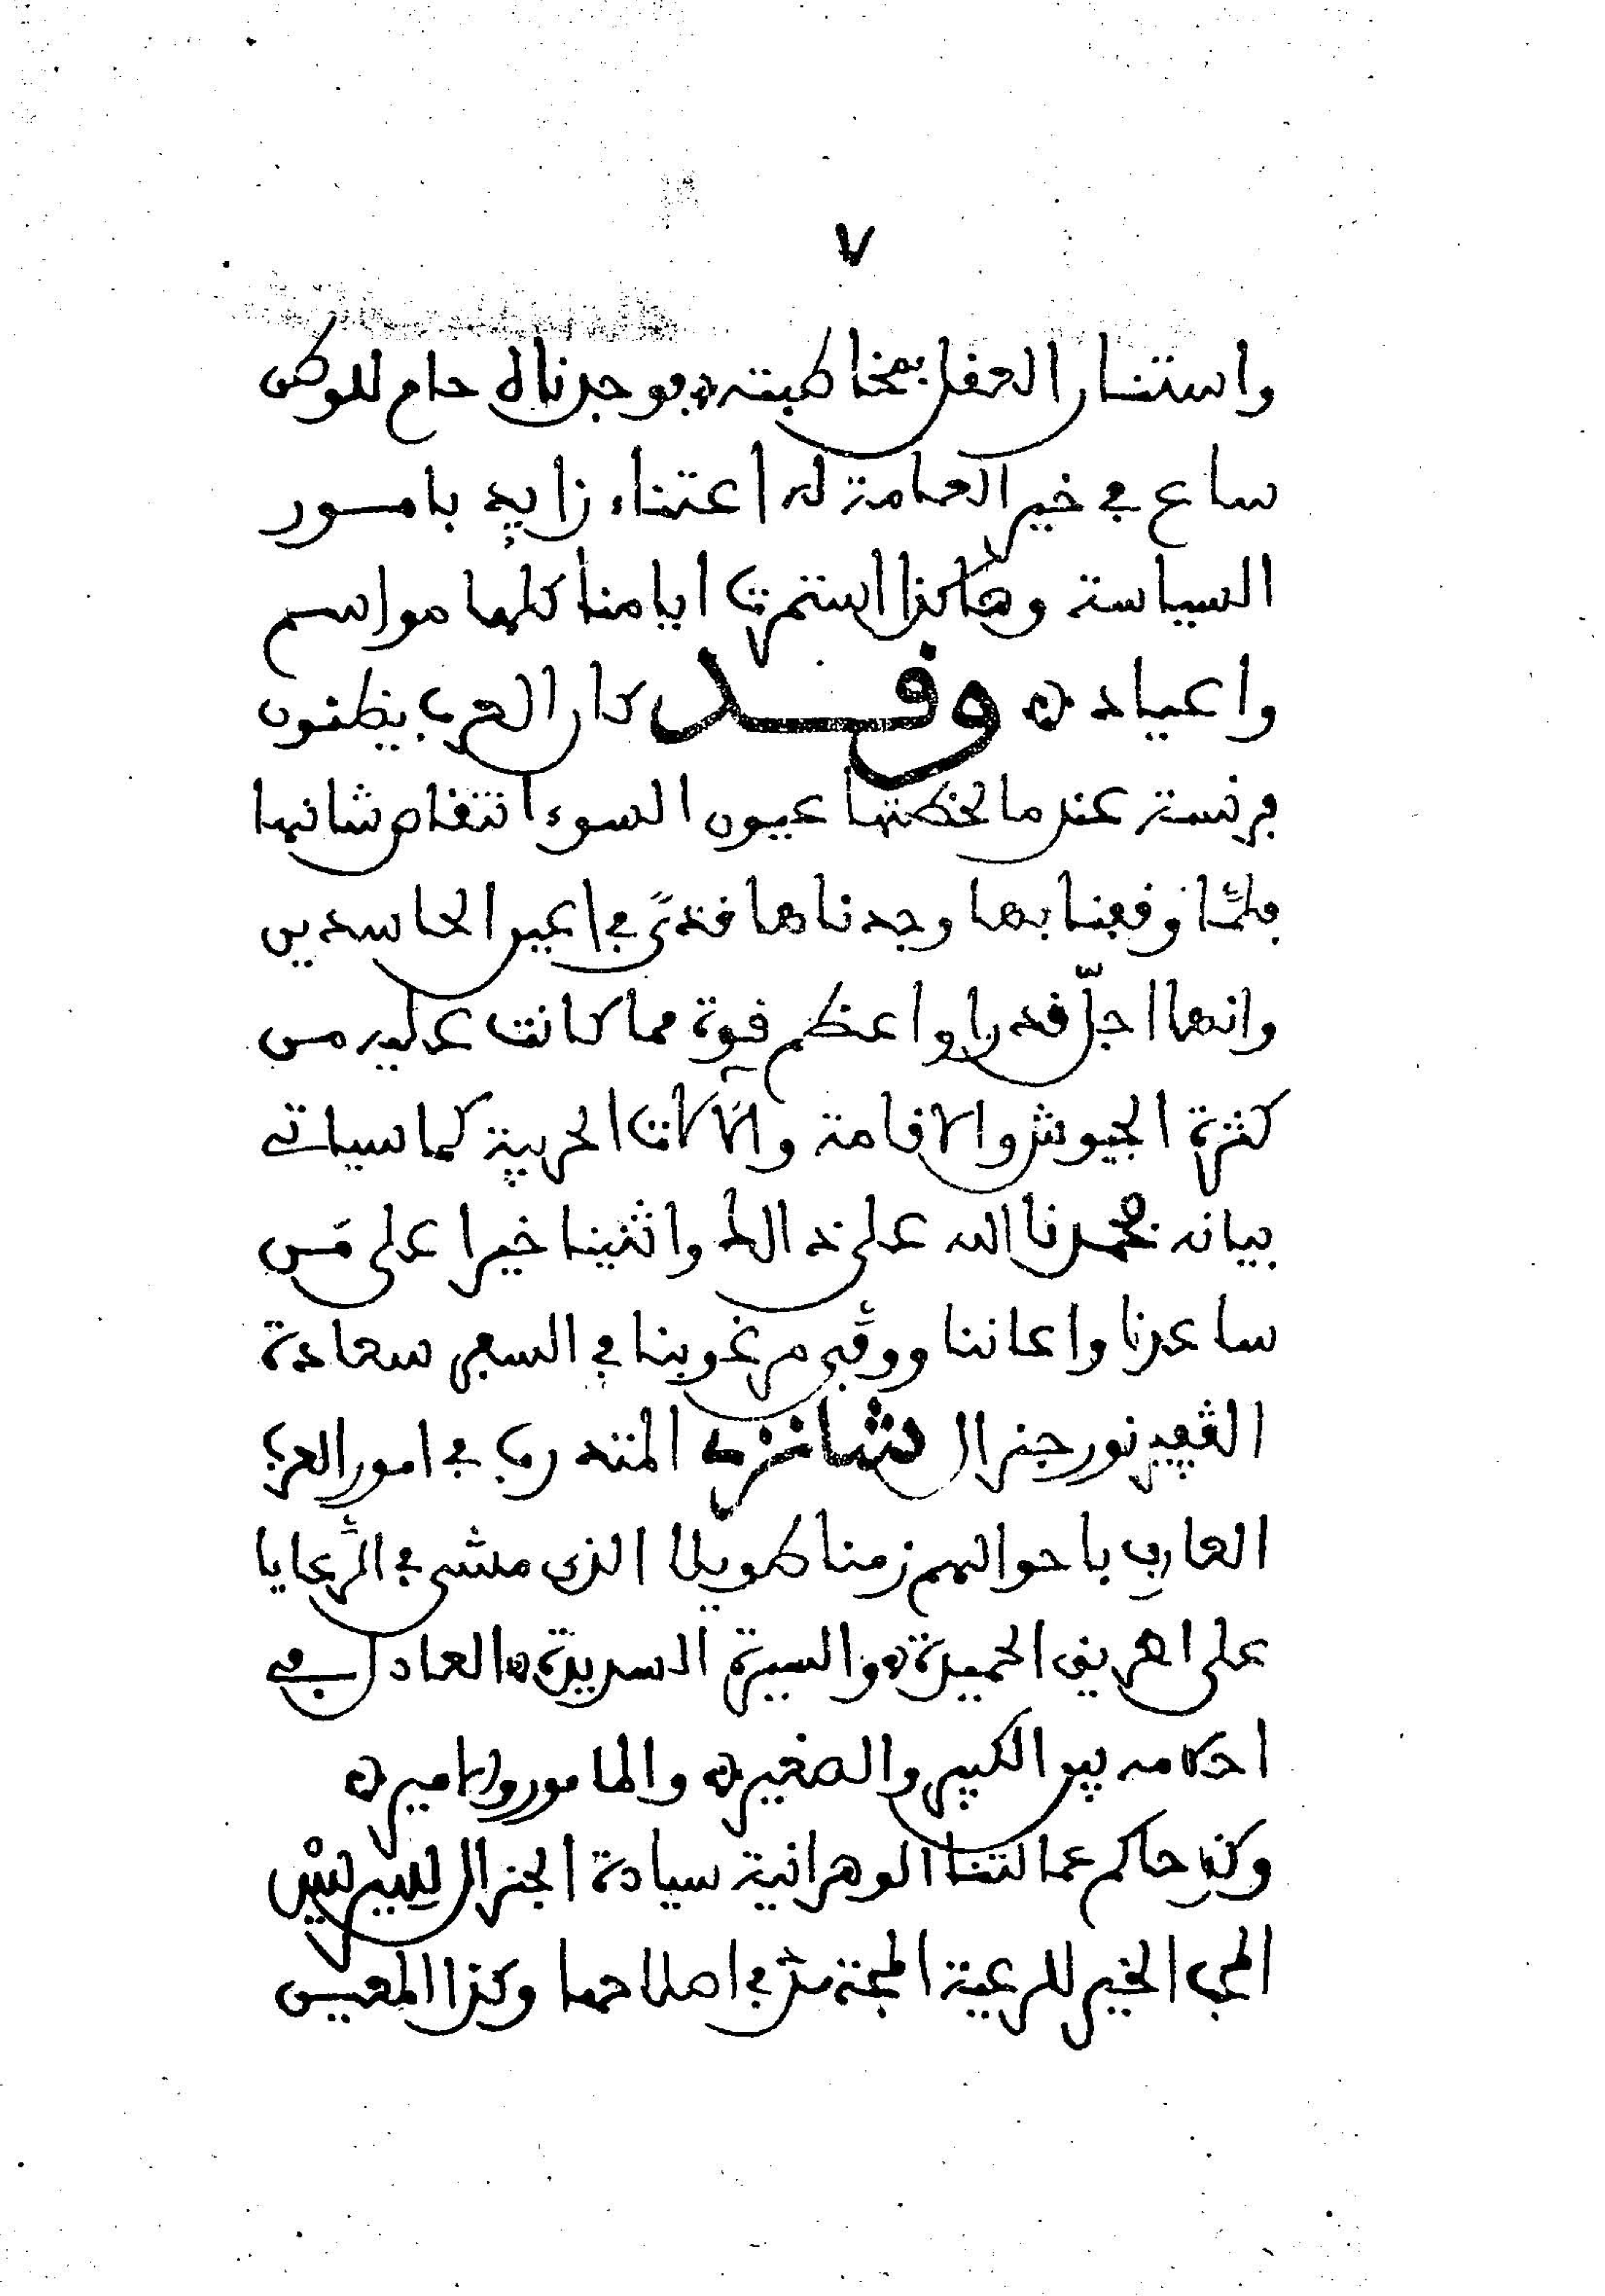 ٧
واستنار العقل بمخاطبته فوجدناه حام للوطن
ساع في خير العامة له اعتناء زايد بامور
السياسة وهاكذا استمرت ايامنا كلها مواسم
واعياد وقد كان العرب يظنون
فرنسة عندما لحظتها عيون السوء انتقاص شانها
فلمّا وقفنا بها وجدناها قذىً في اعين الحاسدين
وانها اجلّ قدرا واعظم قوة مما كانت عليه من
كثرة الجيوش والاقامة والآلات الحربية كما سياتي
بيانه فحمدنا الله على ذالك واثنينا خيرا على مَن
ساعدنا واعاننا ووفّى مرغوبنا في السفر سعادة
الڤفيرنور جنرال شانزي المتدرب في امور العرب
العارف باحوالهم زمنا طويلا الذي مشى في الرّعايا
على الطريق الحميدة والسيرة السديدة العادل في
احكامه بين الكبير والصغير والمامور والامير
وكذا حاكم عمالتنا الوهرانية سيادة الجنرال
المحب الخير للرعية المجتهد في اصلاحها وكذا المعين